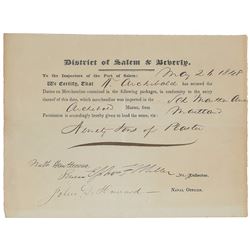 District of Salem & Beverly.
To the Inspectors of the Port of Salem: May 26 1848
We Certify, That Wm Archibald has secured the
Duties on Merchandize contained in the following packages, in conformity to the entry
thereof of this date, which merchandize was imported in the Sch Martha Ann
Archibald Master, from Maitland
Permission is accordingly hereby given to land the same, viz:
Ninety Tons of Plaster
Nath Hawthorne
Ephm F. Miller Collector.
John D. Howard NAVAL OFFICER.